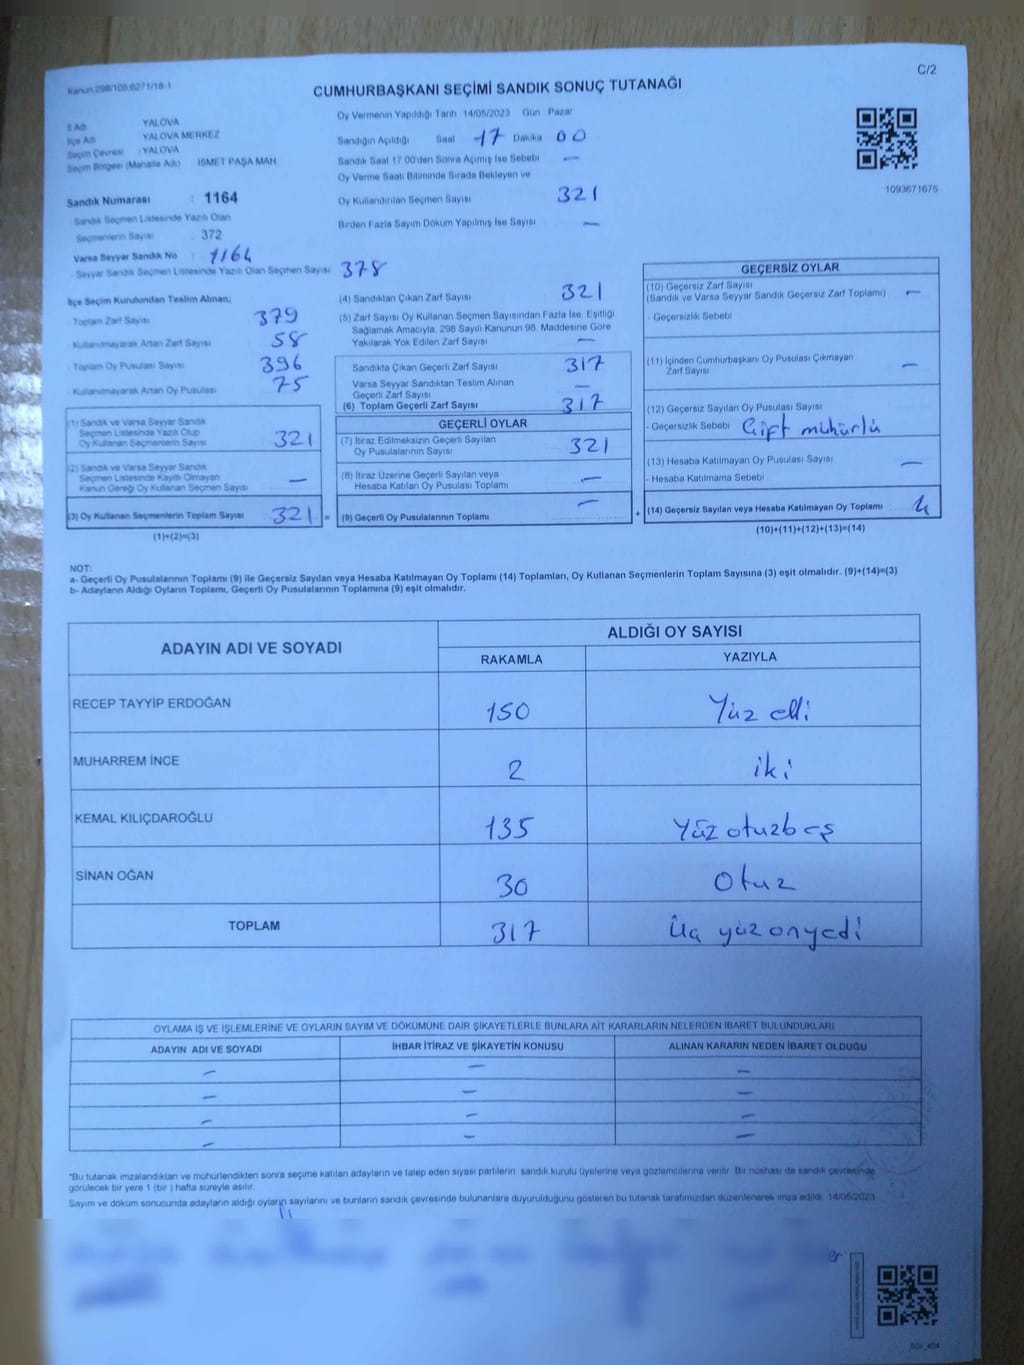 Kanun:298/105,6271/18-1
C/2
CUMHURBAŞKANI SEÇİMİ SANDIK SONUÇ TUTANAĞI
1093671675
İl Adı YALOVA
İlçe Adı YALOVA MERKEZ
Seçim Çevresi : YALOVA
Seçim Bölgesi (Mahalle Adı) İSMET PAŞA MAH.
Sandık Numarası : 1164
Sandık Seçmen Listesinde Yazılı Olan
Seçmenlerin Sayısı : 372
Varsa Seyyar Sandık No : 1164
Seyyar Sandık Seçmen Listesinde Yazılı Olan Seçmen Sayısı 378
Oy Vermenin Yapıldığı Tarih 14/05/2023 Gün Pazar
Sandığın Açıldığı Saat 17 Dakika 00
Sandık Saat 17 00'den Sonra Açımış İse Sebebi —
Oy Verme Saati Bitiminde Sırada Bekleyen ve
Oy Kullandırılan Seçmen Sayısı 321
Birden Fazla Sayım Döküm Yapılmış İse Sayısı —
İlçe Seçim Kurulundan Teslim Alınan;
Toplam Zarf Sayısı 379
Kullanılmayarak Artan Zarf Sayısı 58
Toplam Oy Pusulası Sayısı 396
Kullanılmayarak Artan Oy Pusulası 75
(1) Sandık ve Varsa Seyyar Sandık
Seçmen Listesinde Yazılı Olup
Oy Kullanan Seçmenlerin Sayısı 321
(2) Sandık ve Varsa Seyyar Sandık
Seçmen Listesinde Kayıtlı Olmayan
Kanun Gereği Oy Kullanan Seçmen Sayısı —
(3) Oy Kullanan Seçmenlerin Toplam Sayısı 321 =
(1)+(2)=(3)
(4) Sandıktan Çıkan Zarf Sayısı 321
(5) Zarf Sayısı Oy Kullanan Seçmen Sayısından Fazla İse, Eşitliği
Sağlamak Amacıyla, 298 Sayılı Kanunun 98. Maddesine Göre
Yakılarak Yok Edilen Zarf Sayısı —
Sandıkta Çıkan Geçerli Zarf Sayısı 317
Varsa Seyyar Sandıktan Teslim Alınan
Geçerli Zarf Sayısı —
(6) Toplam Geçerli Zarf Sayısı 317
GEÇERLİ OYLAR
(7) İtiraz Edilmeksizin Geçerli Sayılan
Oy Pusulalarının Sayısı 321
(8) İtiraz Üzerine Geçerli Sayılan veya
Hesaba Katılan Oy Pusulası Toplamı —
(9) Geçerli Oy Pusulalarının Toplamı — +
GEÇERSİZ OYLAR
(10) Geçersiz Zarf Sayısı
(Sandık ve Varsa Seyyar Sandık Geçersiz Zarf Toplamı) —
- Geçersizlik Sebebi
(11) İçinden Cumhurbaşkanı Oy Pusulası Çıkmayan
Zarf Sayısı —
(12) Geçersiz Sayılan Oy Pusulası Sayısı
- Geçersizlik Sebebi Çift mühürlü
(13) Hesaba Katılmayan Oy Pusulası Sayısı —
- Hesaba Katılmama Sebebi
(14) Geçersiz Sayılan veya Hesaba Katılmayan Oy Toplamı 4
(10)+(11)+(12)+(13)=(14)
NOT:
a- Geçerli Oy Pusulalarının Toplamı (9) ile Geçersiz Sayılan veya Hesaba Katılmayan Oy Toplamı (14) Toplamları, Oy Kullanan Seçmenlerin Toplam Sayısına (3) eşit olmalıdır. (9)+(14)=(3)
b- Adayların Aldığı Oyların Toplamı, Geçerli Oy Pusulalarının Toplamına (9) eşit olmalıdır.
ADAYIN ADI VE SOYADI ALDIĞI OY SAYISI
RAKAMLA YAZIYLA
RECEP TAYYİP ERDOĞAN 150 Yüz elli
MUHARREM İNCE 2 iki
KEMAL KILIÇDAROĞLU 135 Yüz otuzbeş
SİNAN OĞAN 30 Otuz
TOPLAM 317 Üç yüz onyedi
OYLAMA İŞ VE İŞLEMLERİNE VE OYLARIN SAYIM VE DÖKÜMÜNE DAİR ŞİKAYETLERLE BUNLARA AİT KARARLARIN NELERDEN İBARET BULUNDUKLARI
ADAYIN ADI VE SOYADI İHBAR İTİRAZ VE ŞİKAYETİN KONUSU ALINAN KARARIN NEDEN İBARET OLDUĞU
— — —
— — —
— — —
— — —
*Bu tutanak imzalandıktan ve mühürlendikten sonra seçime katılan adayların ve talep eden siyasi partilerin sandık kurulu üyelerine veya gözlemcilerine verilir. Bir nüshası da sandık çevresinde
görülecek bir yere 1 (bir ) hafta süreyle asılır.
Sayım ve döküm sonucunda adayların aldığı oyların sayılarını ve bunların sandık çevresinde bulunanlara duyurulduğunu gösteren bu tutanak tarafımızdan düzenlenerek imza edildi. 14/05/2023